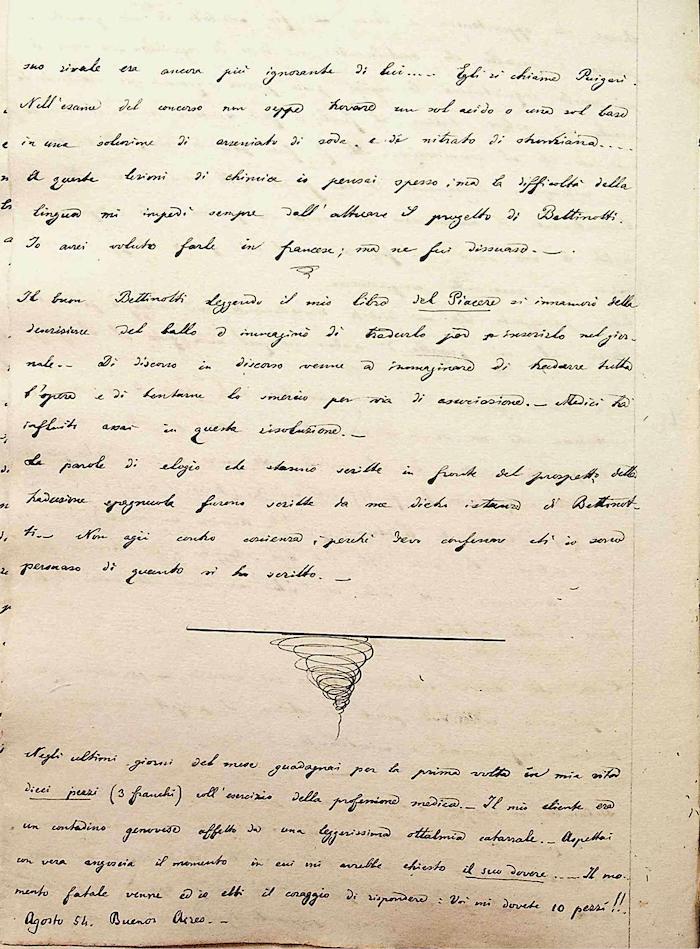 suo rivale era ancora più ignorante di lui.... Egli si chiama Puigari.
Nell'esame del concorso non seppe trovare un sol acido o una sol base
in una soluzione di arseniato di soda e di nitrato di stronziana....
A queste lezioni di chimica io pensai spesso; ma la difficoltà della
lingua mi impedì sempre dall'attuare il progetto di Bettinotti.
Io avrei voluto farle in francese; ma ne fui dissuaso. —
Il buon Bettinotti leggendo il mio libro del Piacere si innamorò della
descrizione del ballo e immaginò di tradurlo per inserirlo nel gior-
nale. — Di discorso in discorso venne a immaginare di tradurre tutta
l'opera e di tentarne lo smercio per via di associazione. — Medici ha
influito assai in questa risoluzione. —
Le parole di elogio che stanno scritte in fronte del prospetto della
traduzione spagnuola furono scritte da me dietro istanza di Bettinot-
ti — Non agii contro coscienza; perchè devo confessare ch'io sono
persuaso di quanto si ha scritto. —
Negli ultimi giorni del mese guadagnai per la prima volta in mia vita
dieci pezzi (3 franchi) coll'esercizio della professione medica. — Il mio cliente era
un contadino genovese affetto da una leggerissima ottalmia catarrale. — Aspettai
con vera angoscia il momento in cui mi avrebbe chiesto il suo dovere.... Il mo-
mento fatale venne ed io ebbi il coraggio di rispondere: Voi mi dovete 10 pezzi!!
Agosto 54. Buenos Aires. —